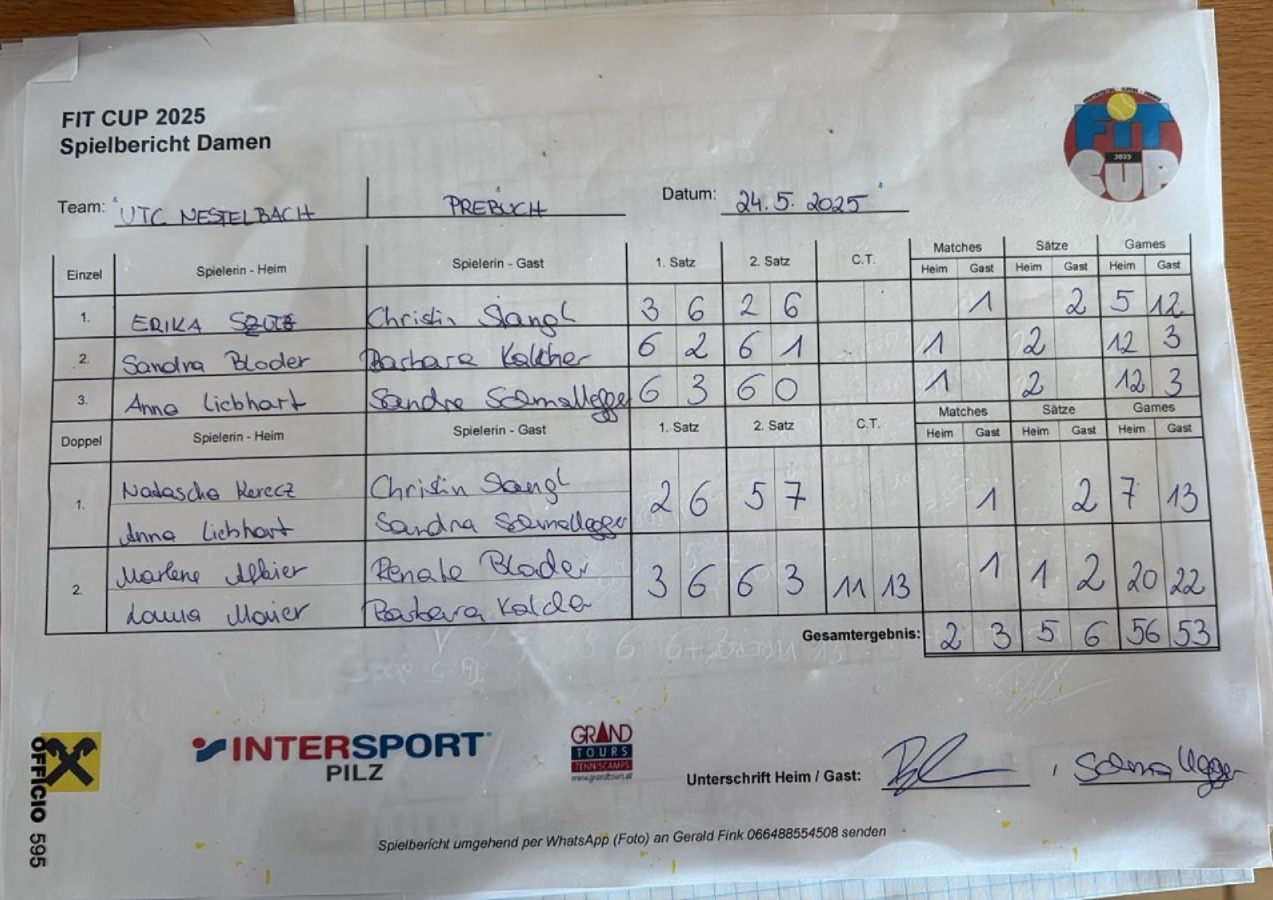 FIT CUP 2025
Spielbericht Damen
FIT CUP 2025
Team: UTC NESTELBACH PREBUCH Datum: 24.5.2025
Einzel Spielerin - Heim Spielerin - Gast 1. Satz 2. Satz C.T. Matches Sätze Games
Heim Gast Heim Gast Heim Gast
1. ERIKA Christin Stangl 3 6 2 6 1 2 5 12
2. Sandra Bloder Barbara Kalcher 6 2 6 1 1 2 12 3
3. Anna Liebhart Sandra Schmallegger 6 3 6 0 1 2 12 3
Doppel Spielerin - Heim Spielerin - Gast 1. Satz 2. Satz C.T. Matches Sätze Games
Heim Gast Heim Gast Heim Gast
1. Natascha Kerecz Christin Stangl 2 6 5 7 1 2 7 13
Anna Liebhart Sandra Schmallegger
2. Marlene Renate Bloder 3 6 6 3 11 13 1 1 2 20 22
Laura Maier Barbara
Gesamtergebnis: 2 3 5 6 56 53
OFFICIO 595
INTERSPORT
PILZ
GRAND
TOURS
TENNISCAMPS
www.grandtours.at
Unterschrift Heim / Gast: , Schmallegger
Spielbericht umgehend per WhatsApp (Foto) an Gerald Fink 066488554508 senden